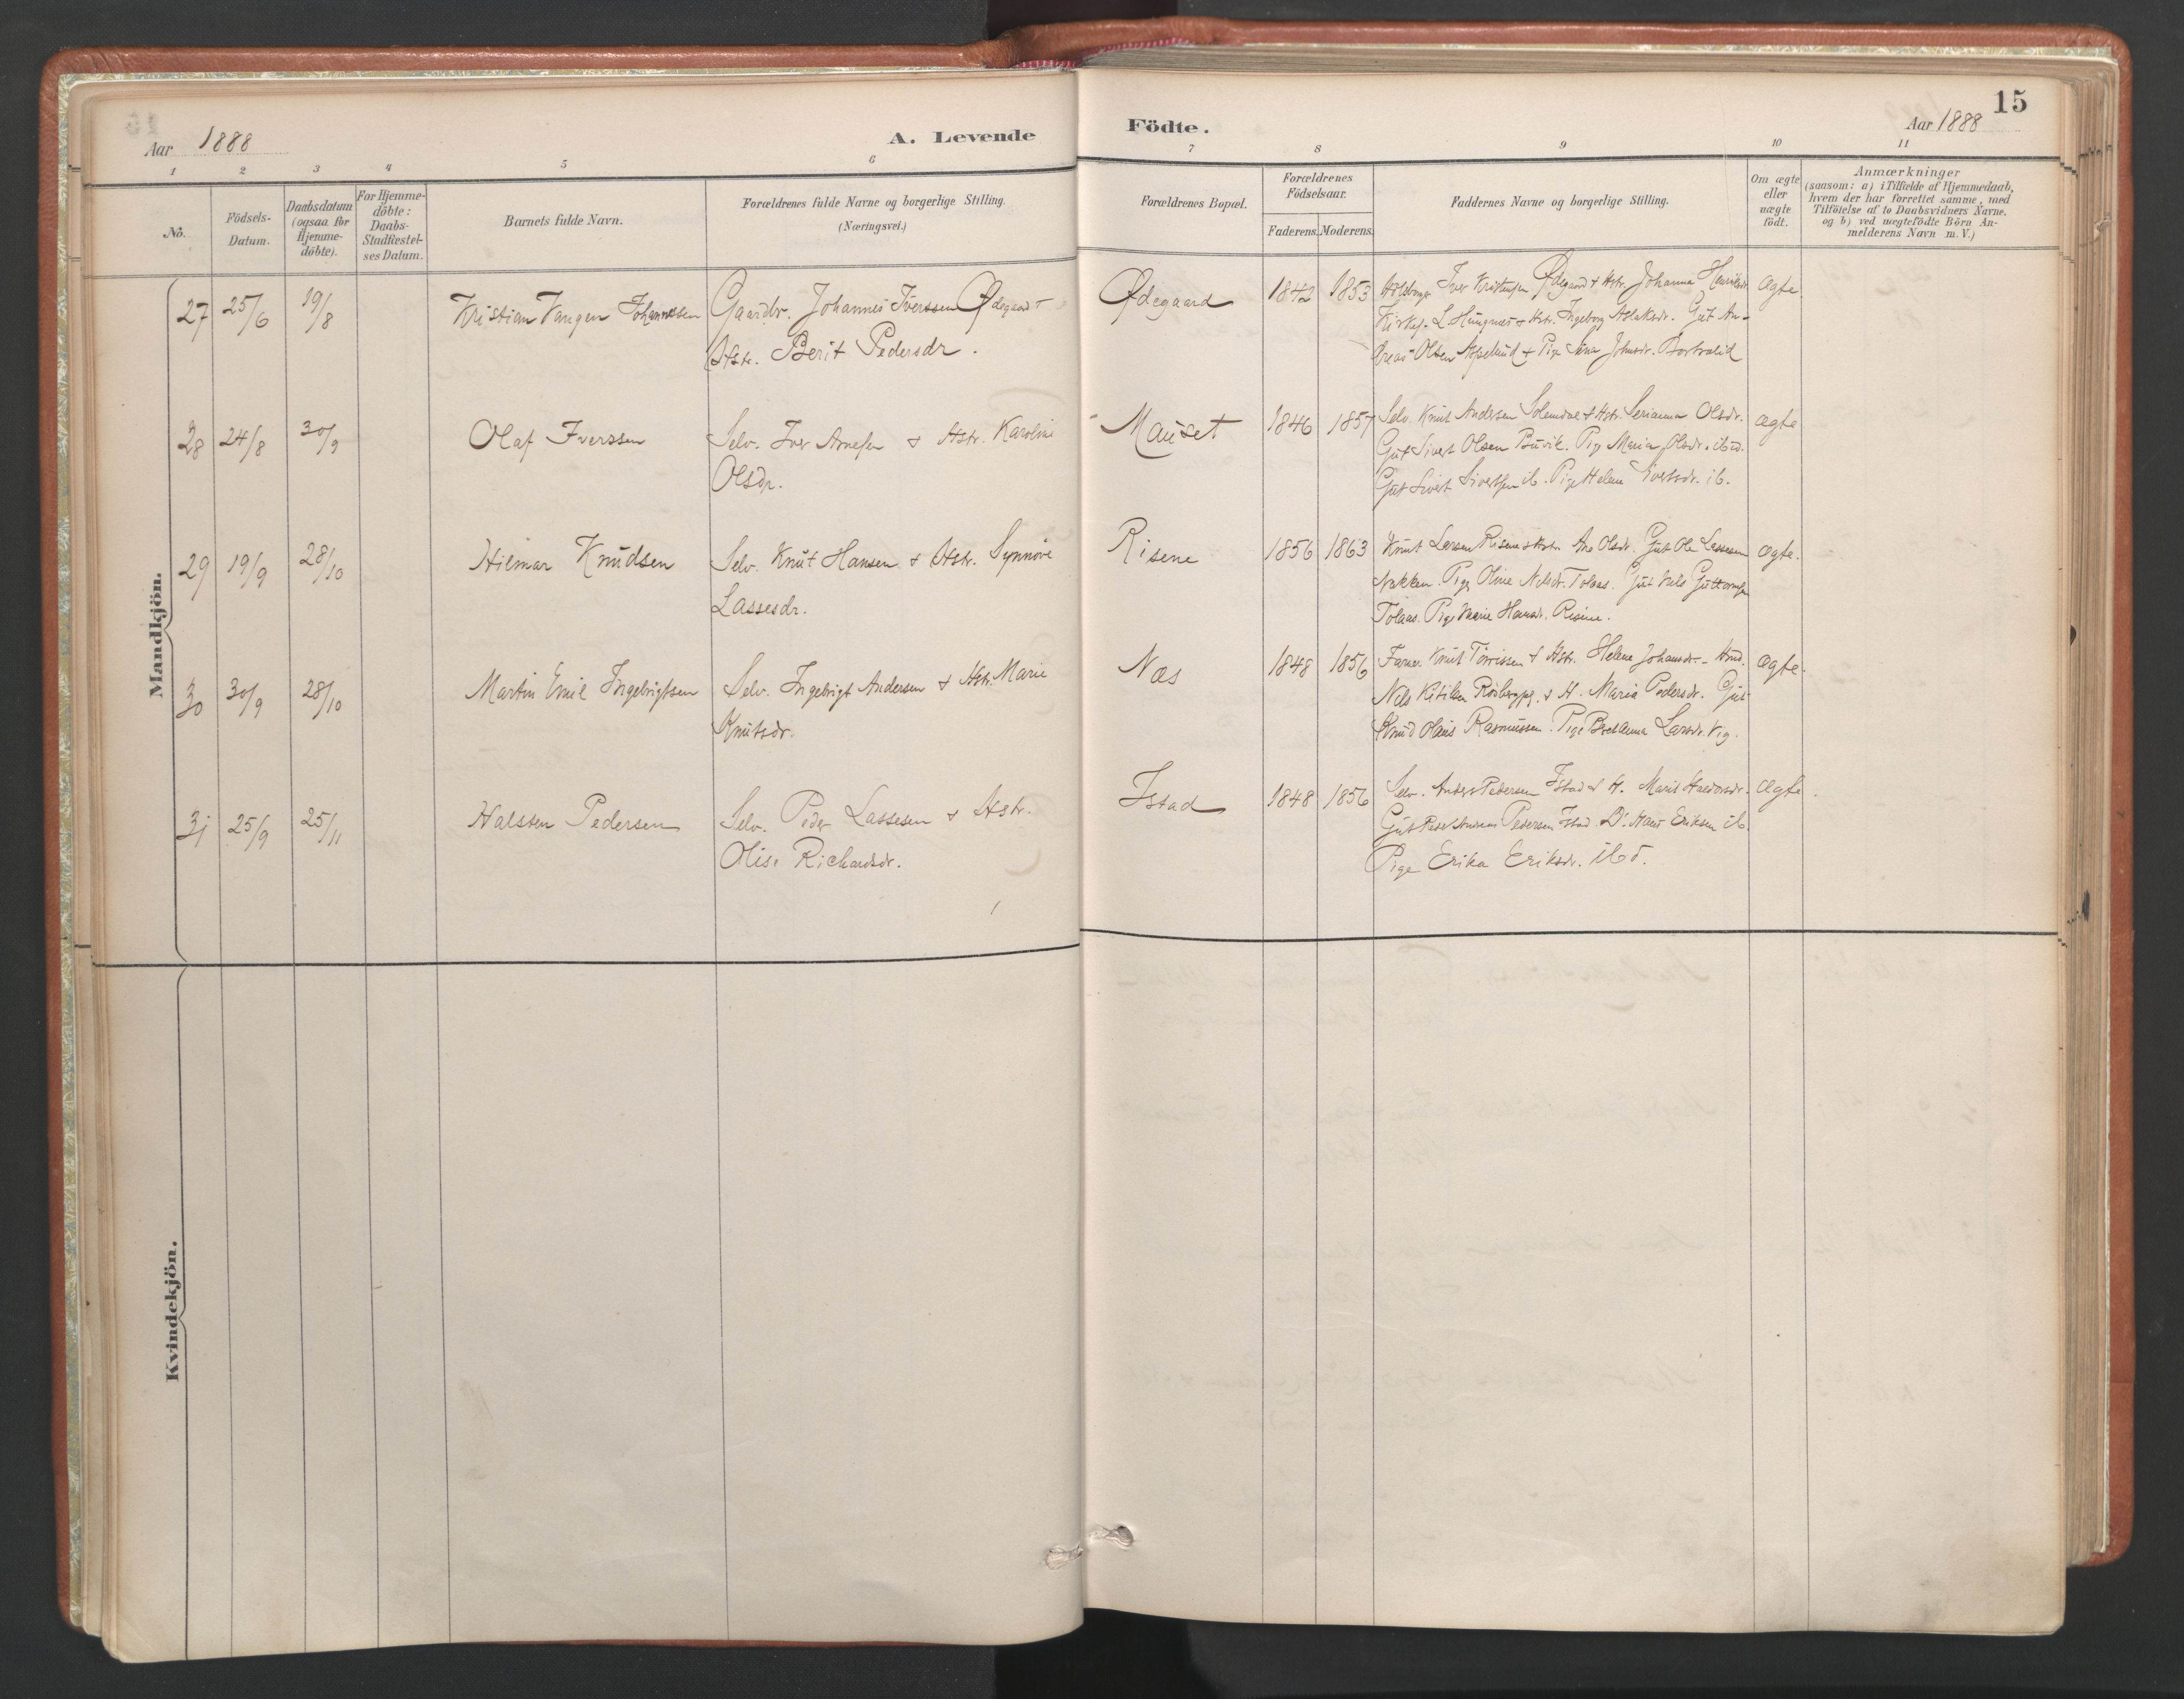 15
Aar 1888
A. Levende
Födte.
Aar 1888
1 2 3 4 5 6 7 8 9 10 11
No.
Födsels-
Datum.
Daabsdatum
(ogsaa for
Hjemme-
döbte).
For Hjemme-
döbte:
Daabs-
Stadfæstel-
ses Datum.
Barnets fulde Navn.
Forældrenes fulde Navne og borgerlige Stilling.
(Næringsvei.)
Forældrenes Bopæl.
Forældrenes
Födselsaar.
Faderens. Moderens.
Faddernes Navne og borgerlige Stilling.
Om ægte
eller
uægte
födt.
Anmærkninger
(saasom: a) i Tilfælde af Hjemmedaab,
hvem der har forrettet samme, med
Tilföielse af to Daabsvidners Navne.
og b) ved uægtefödte Börn An-
melderens Navn m. V.)
Mandkjön.
27 25/6 19/8 Kristian Vangen Johannessen
Gaardbr. Johannes Iverssen Ødegaard +
Hstr. Berit Pedersdr.
Ødegaard 1842 1853
Iver Kristensen Ødegaard + Hstr. Johanna Henriksdr.
Kirkes. L. Hungnes + Hstr. Ingeborg Aslaksdr. Gut An-
dreas Olsen + Pige Johnsdr.
ægte
28 24/8 30/9 Olaf Iverssen
Selv. Iver Arnesen + Hstr. Karoline
Olsdr.
Mauset 1846 1857
Selv. Knut Andersen Solemdal + Hstr. Serianna Olsdr.
Gut Sivert Olsen Buvik. Pig Maria Olsdr. ibid.
Gut Sivert Sivertsen ib. Pige Helene Ivertsdr. ib.
ægte
29 19/9 28/10 Hilmar Knudsen
Selv. Knut Hansen + Hstr. Synnøve
Lassesdr.
Risene 1856 1863
Knut Larsen Risene + Hstr. Ane Olsdr. Gut Ole Lassesen
Nakken. Pige Oline Nilsdr. Tolaas. Gut Nils Guttormsen
Tolaas. Pige Marie Hansdr. Risene.
ægte.
30 30/9 28/10 Martin Emil Ingebrigtsen
Selv. Ingebrigt Andersen + Hstr. Marie
Knutsdr.
Næs 1848 1856
Knut Tørrissen + Hstr. Helene Johansdr.
Nils Kitilsen + H. Maria Pedersdr. Gut
Knud Olaus Rasmussen. Pige Larsdr. Vig.
ægte.
31 25/9 25/11 Halsten Pedersen
Selv. Peder Lassesen + Hstr.
Olise Richardsdr.
Istad 1848 1856
Selv. Anders Pedersen Istad + H. Marit Haldorsdr.
Gut Peder Pedersen Istad. Do. Hans Eriksen ib.
Pige Erika Eriksdr. ibd.
ægte.
Kvindekjön.